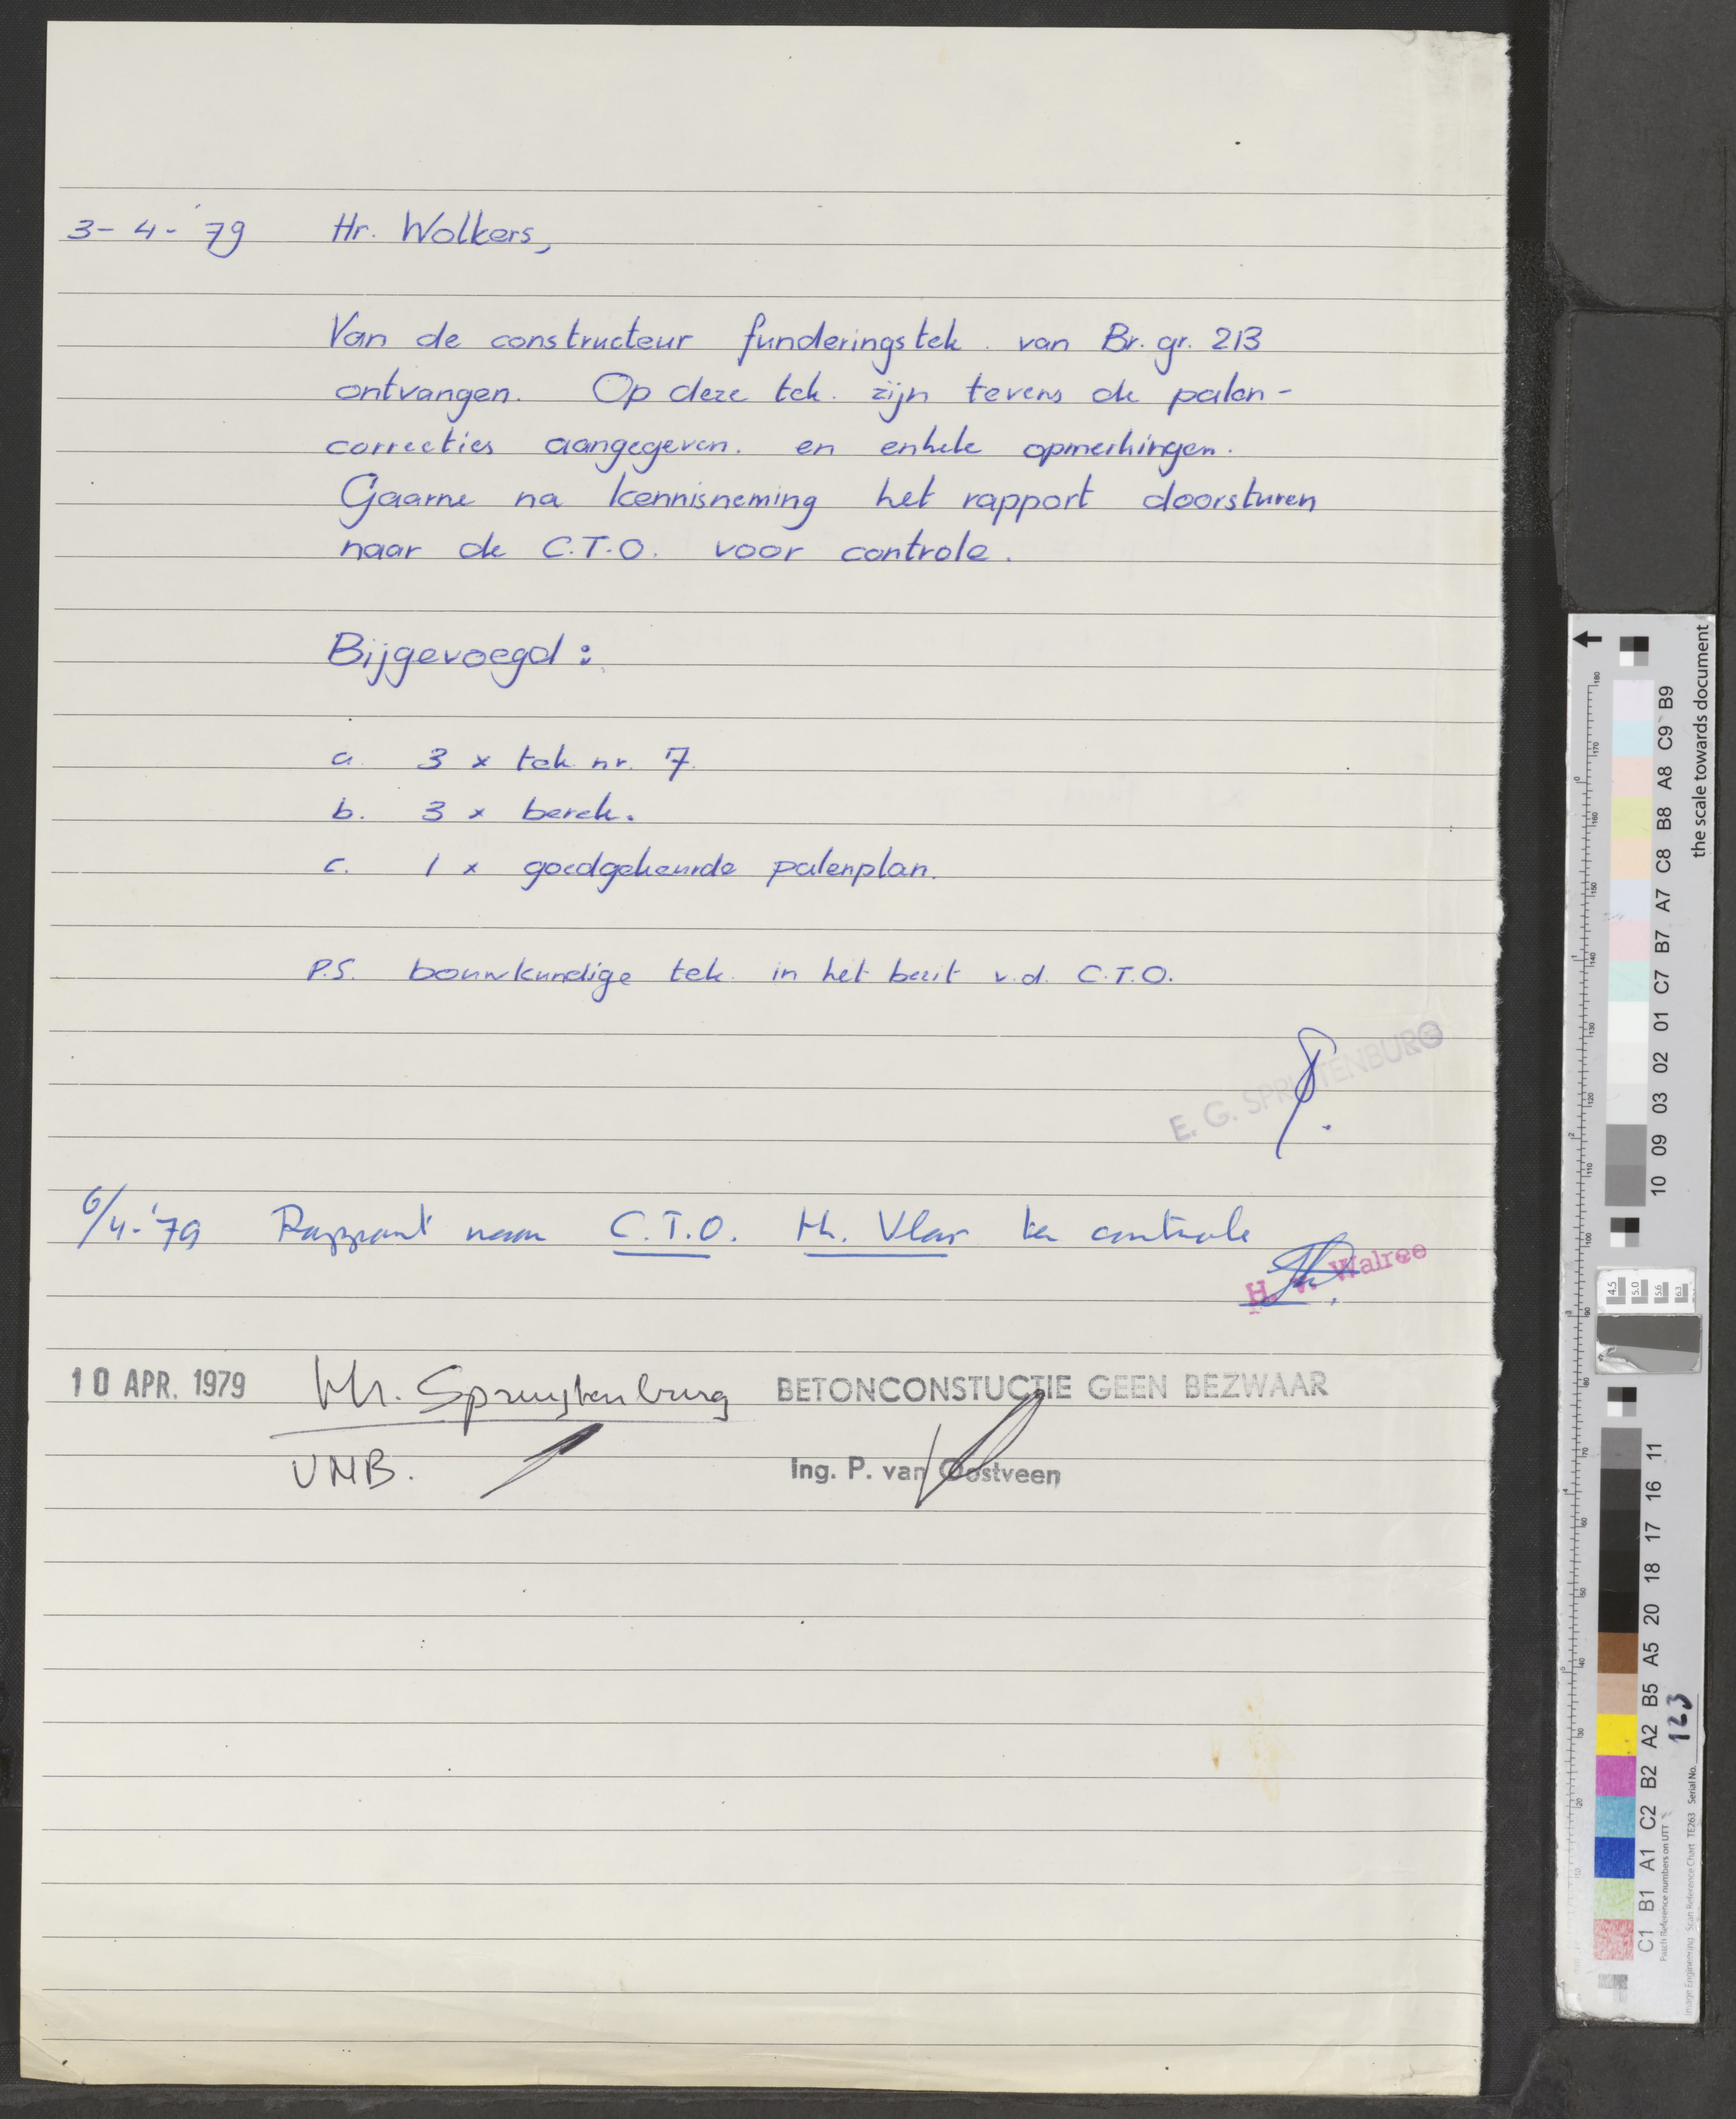 3-4-'79 Hr. Wolkers,
Van de constructeur funderingstek. van Br. gr. 213
ontvangen. Op deze tek. zijn tevens de palen-
correcties aangegeven. en enkele opmerkingen.
Gaarne na kennisneming het rapport doorsturen
naar de C.T.O. voor controle.
Bijgevoegd:
a. 3 x tek. nr. 7.
b. 3 x berek.
c. 1 x goedgekeurde palenplan.
P.S. bouwkundige tek. in het bezit v.d. C.T.O.
E. G. SPRUITENBURG
6/4-'79 Rapport naar C.T.O. Hr. Vlas ter controle
H. v. Walree
10 APR. 1979 Hr. Spruytenburg BETONCONSTUCTIE GEEN BEZWAAR
VMB. Ing. P. van Oostveen
the scale towards document
C1 B1 A1 C2 B2 A2 B5 A5 20 18 17 16 11 10 09 03 02 01 C7 B7 A7 C8 B8 A8 C9 B9
Patch Reference numbers on UTT
Image Engineering Scan Reference Chart TE263 Serial No. 123